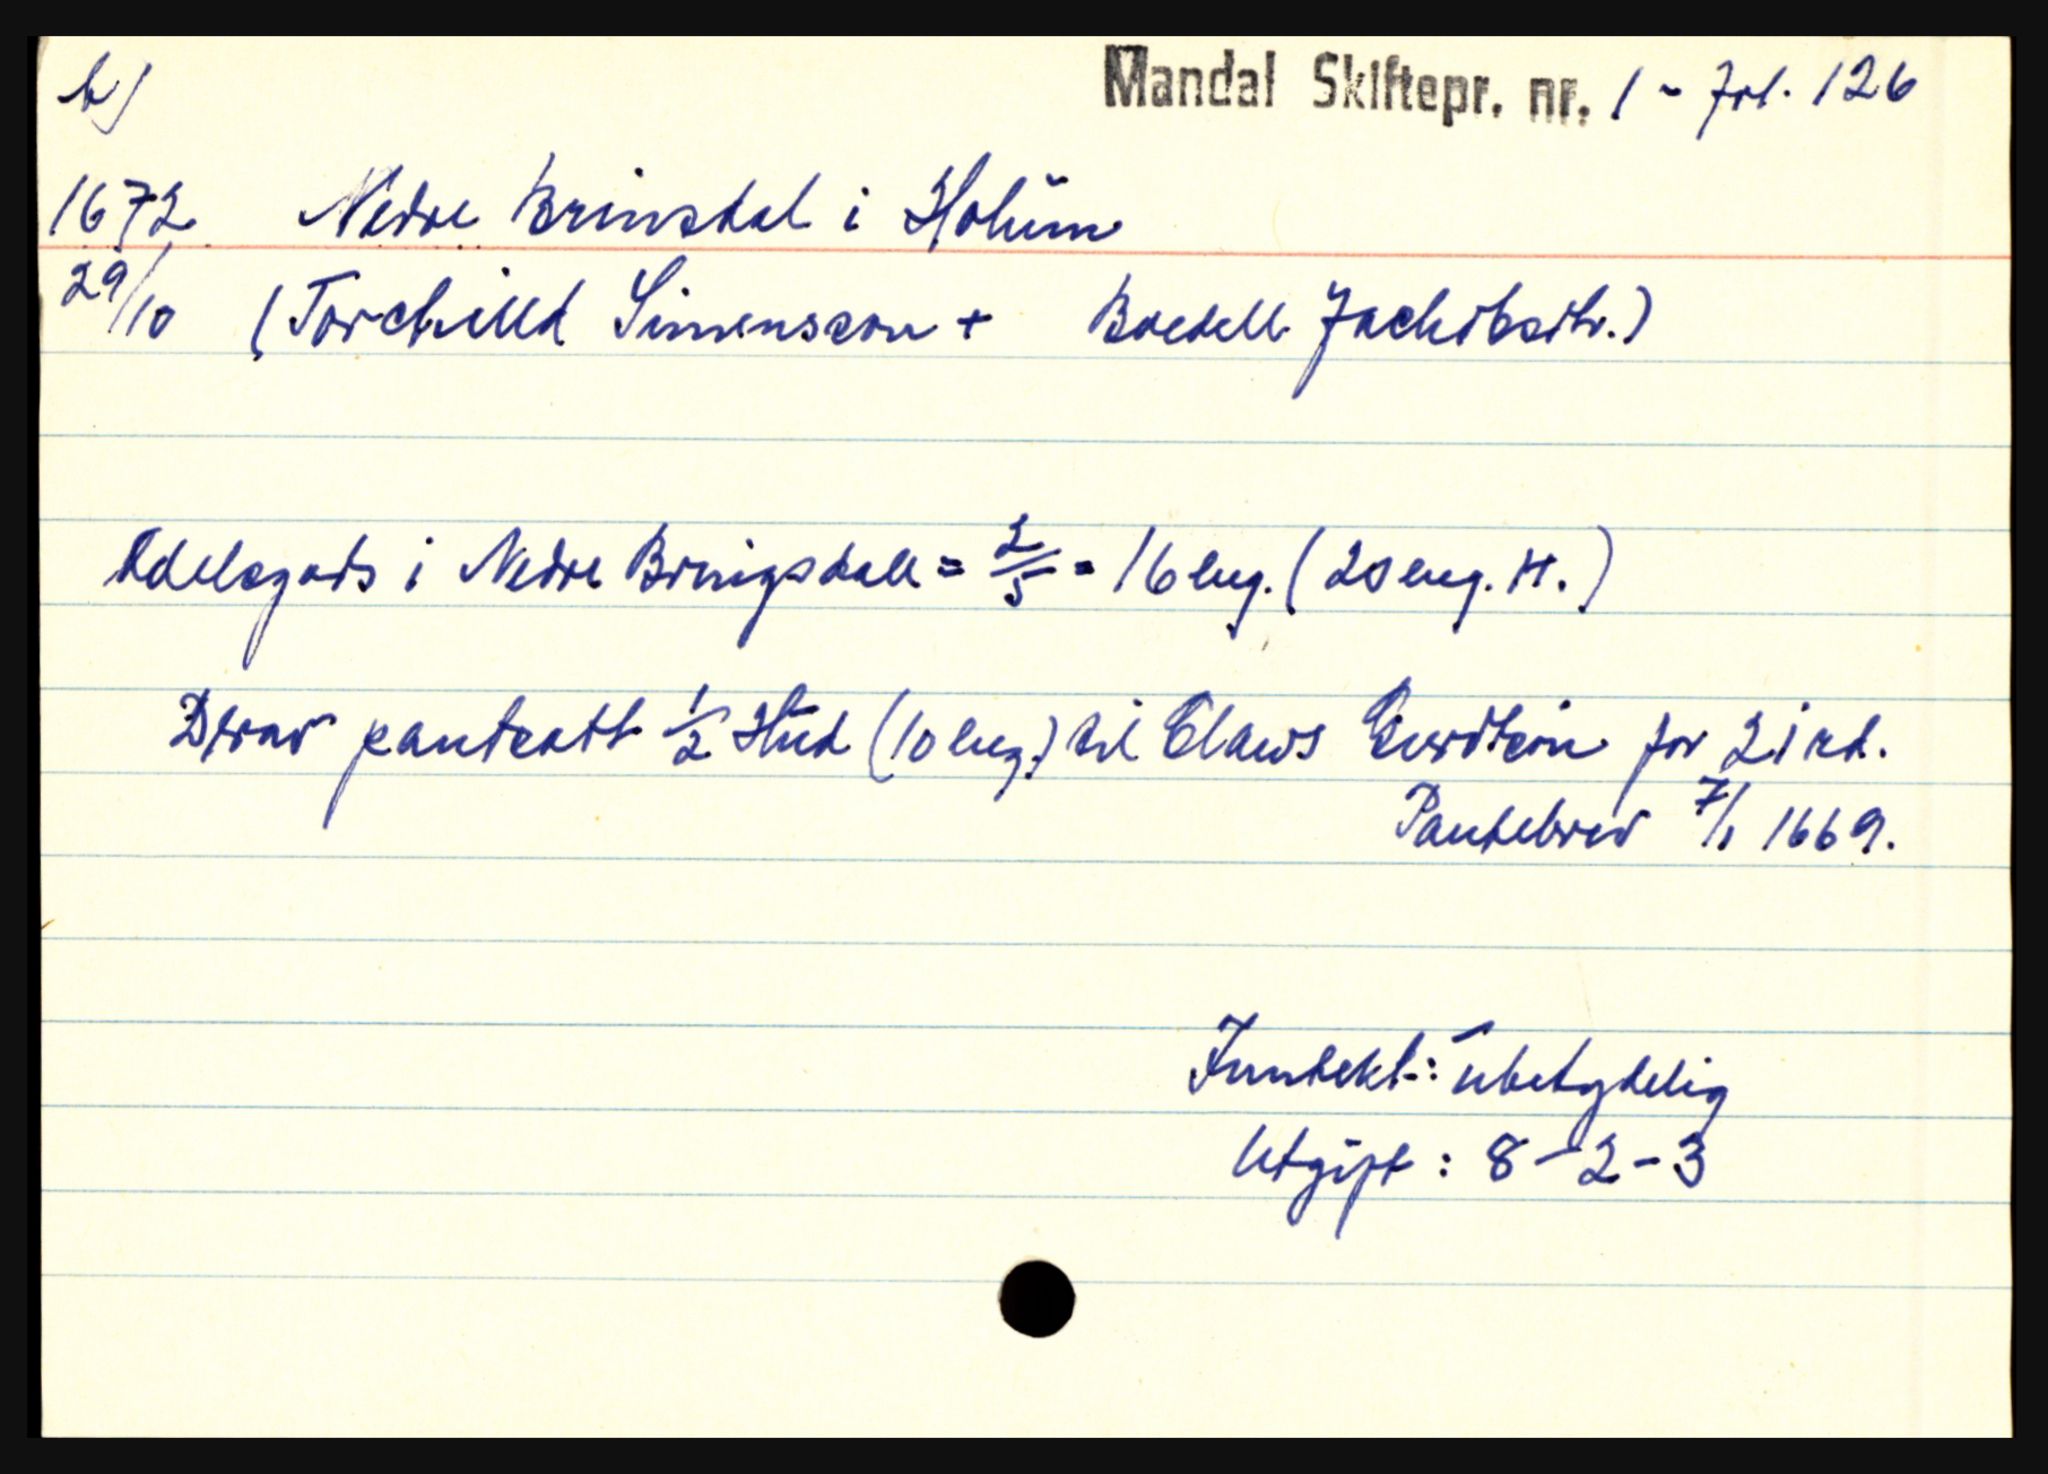 b)
Mandal Skiftepr. nr. 1 - Fol. 126
1672 Nedre Brinsdal i Holum
29/10 (Torchilld Simenssøn + Boedell Jachobsdtr.)
Adelsgods i Nedre Bringsdall = 2/5 = 16 eng. (20 eng. H.)
Derav pantsatt 1/2 Hud (10 eng.) til Claws for 21 rd.
Pantebrev 7/1 1669.
Inntekt: ubetydelig
Utgift: 8-2-3